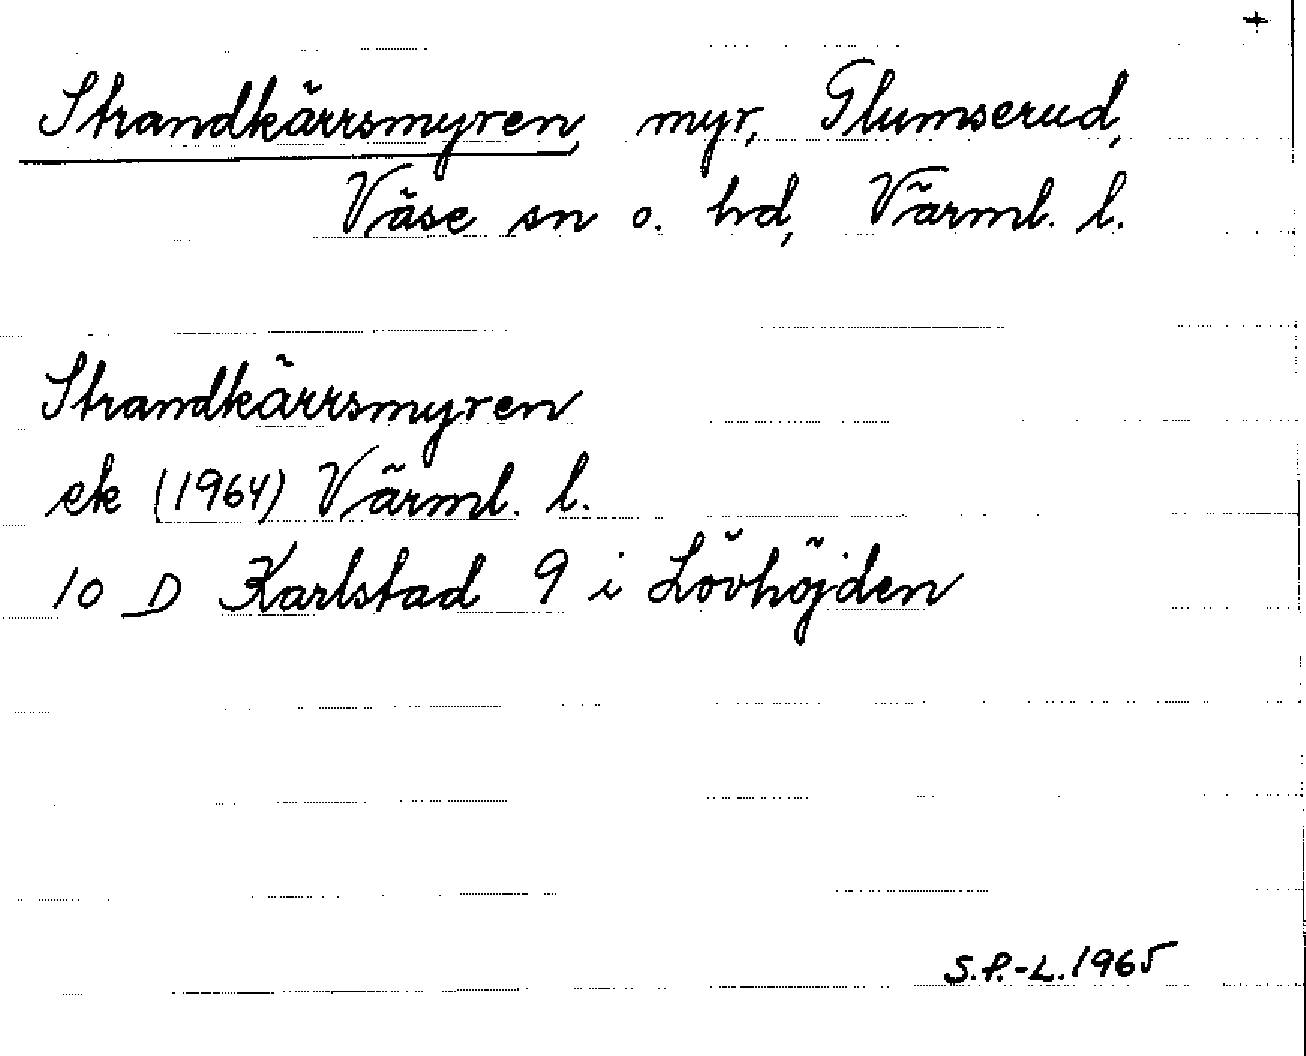 +
Strandkärrsmyren, myr, Glumserud,
Väse sn o. hd, Värml. l.
Strandkärrsmyren
ek (1964) Värml. l.
10 D Karlstad 9 i Lövhöjden
S.P.-L. 1965